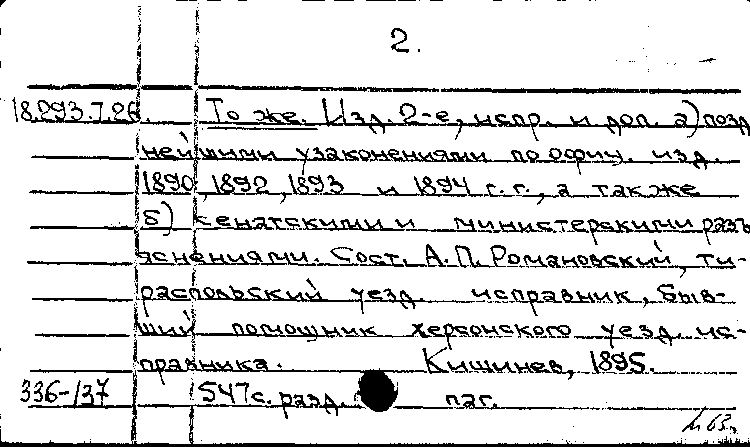 2.
18.293.7.26. То же. Изд. 2-е, испр. и доп. а) позд
нейшими узаконениями по офиц. изд.
1890, 1892, 1893 и 1894 г.г., а также
б) сенатскими и министерскими разъ
яснениями. Сост. А.П. Романовский, ти-
распольский уезд. исправник, быв-
ший помощник херсонского уезд. ис-
правника. Кишинев, 1895.
336-137 547 с. разд. паг.